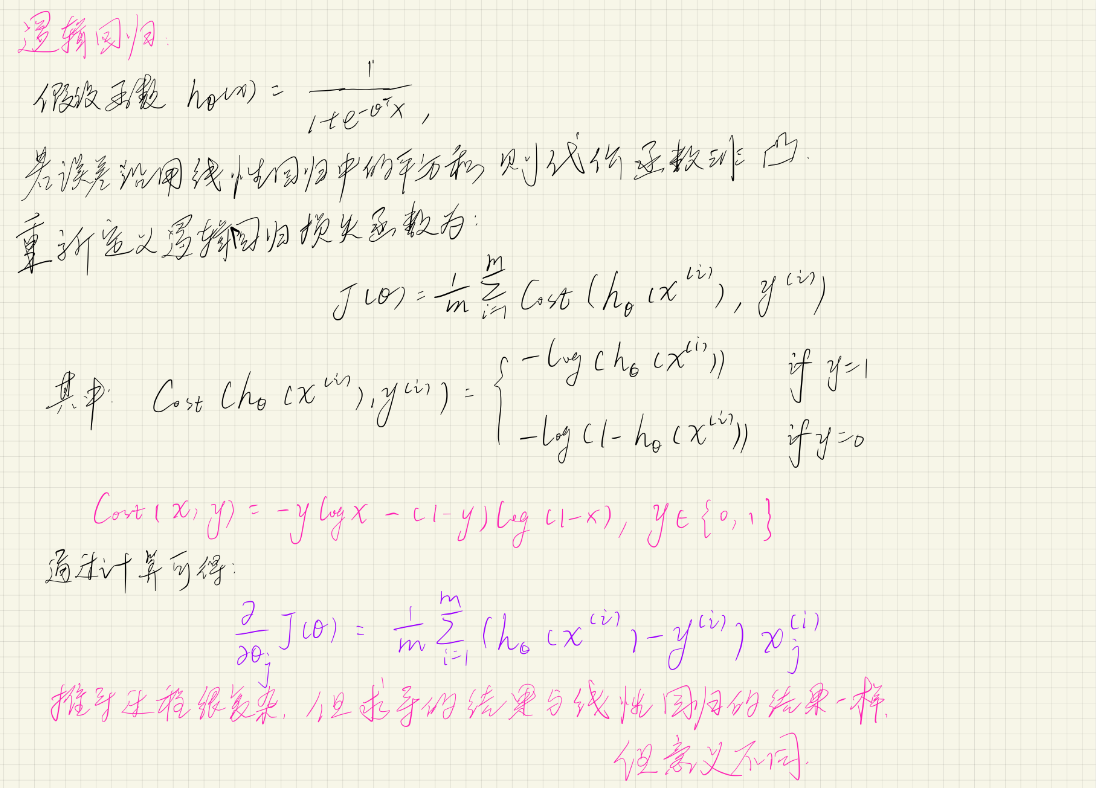 逻辑回归.
假设函数 hθ(x) = 1/(1+e^(-θ^T x)),
若误差沿用线性回归中的平方和 则代价函数非凸.
重新定义逻辑回归损失函数为:
J(θ) = 1/m Σ_{i=1}^{m} Cost(hθ(x^(i)), y^(i))
其中: Cost(hθ(x^(i)), y^(i)) = { -log(hθ(x^(i))) if y=1
-log(1-hθ(x^(i))) if y=0
Cost(x, y) = -y log x - (1-y) log(1-x), y∈{0, 1}
通过计算可得:
∂/∂θj J(θ) = 1/m Σ_{i=1}^{m} (hθ(x^(i)) - y^(i)) xj^(i)
推导过程很复杂, 但求导的结果与线性回归的结果一样,
但意义不同.